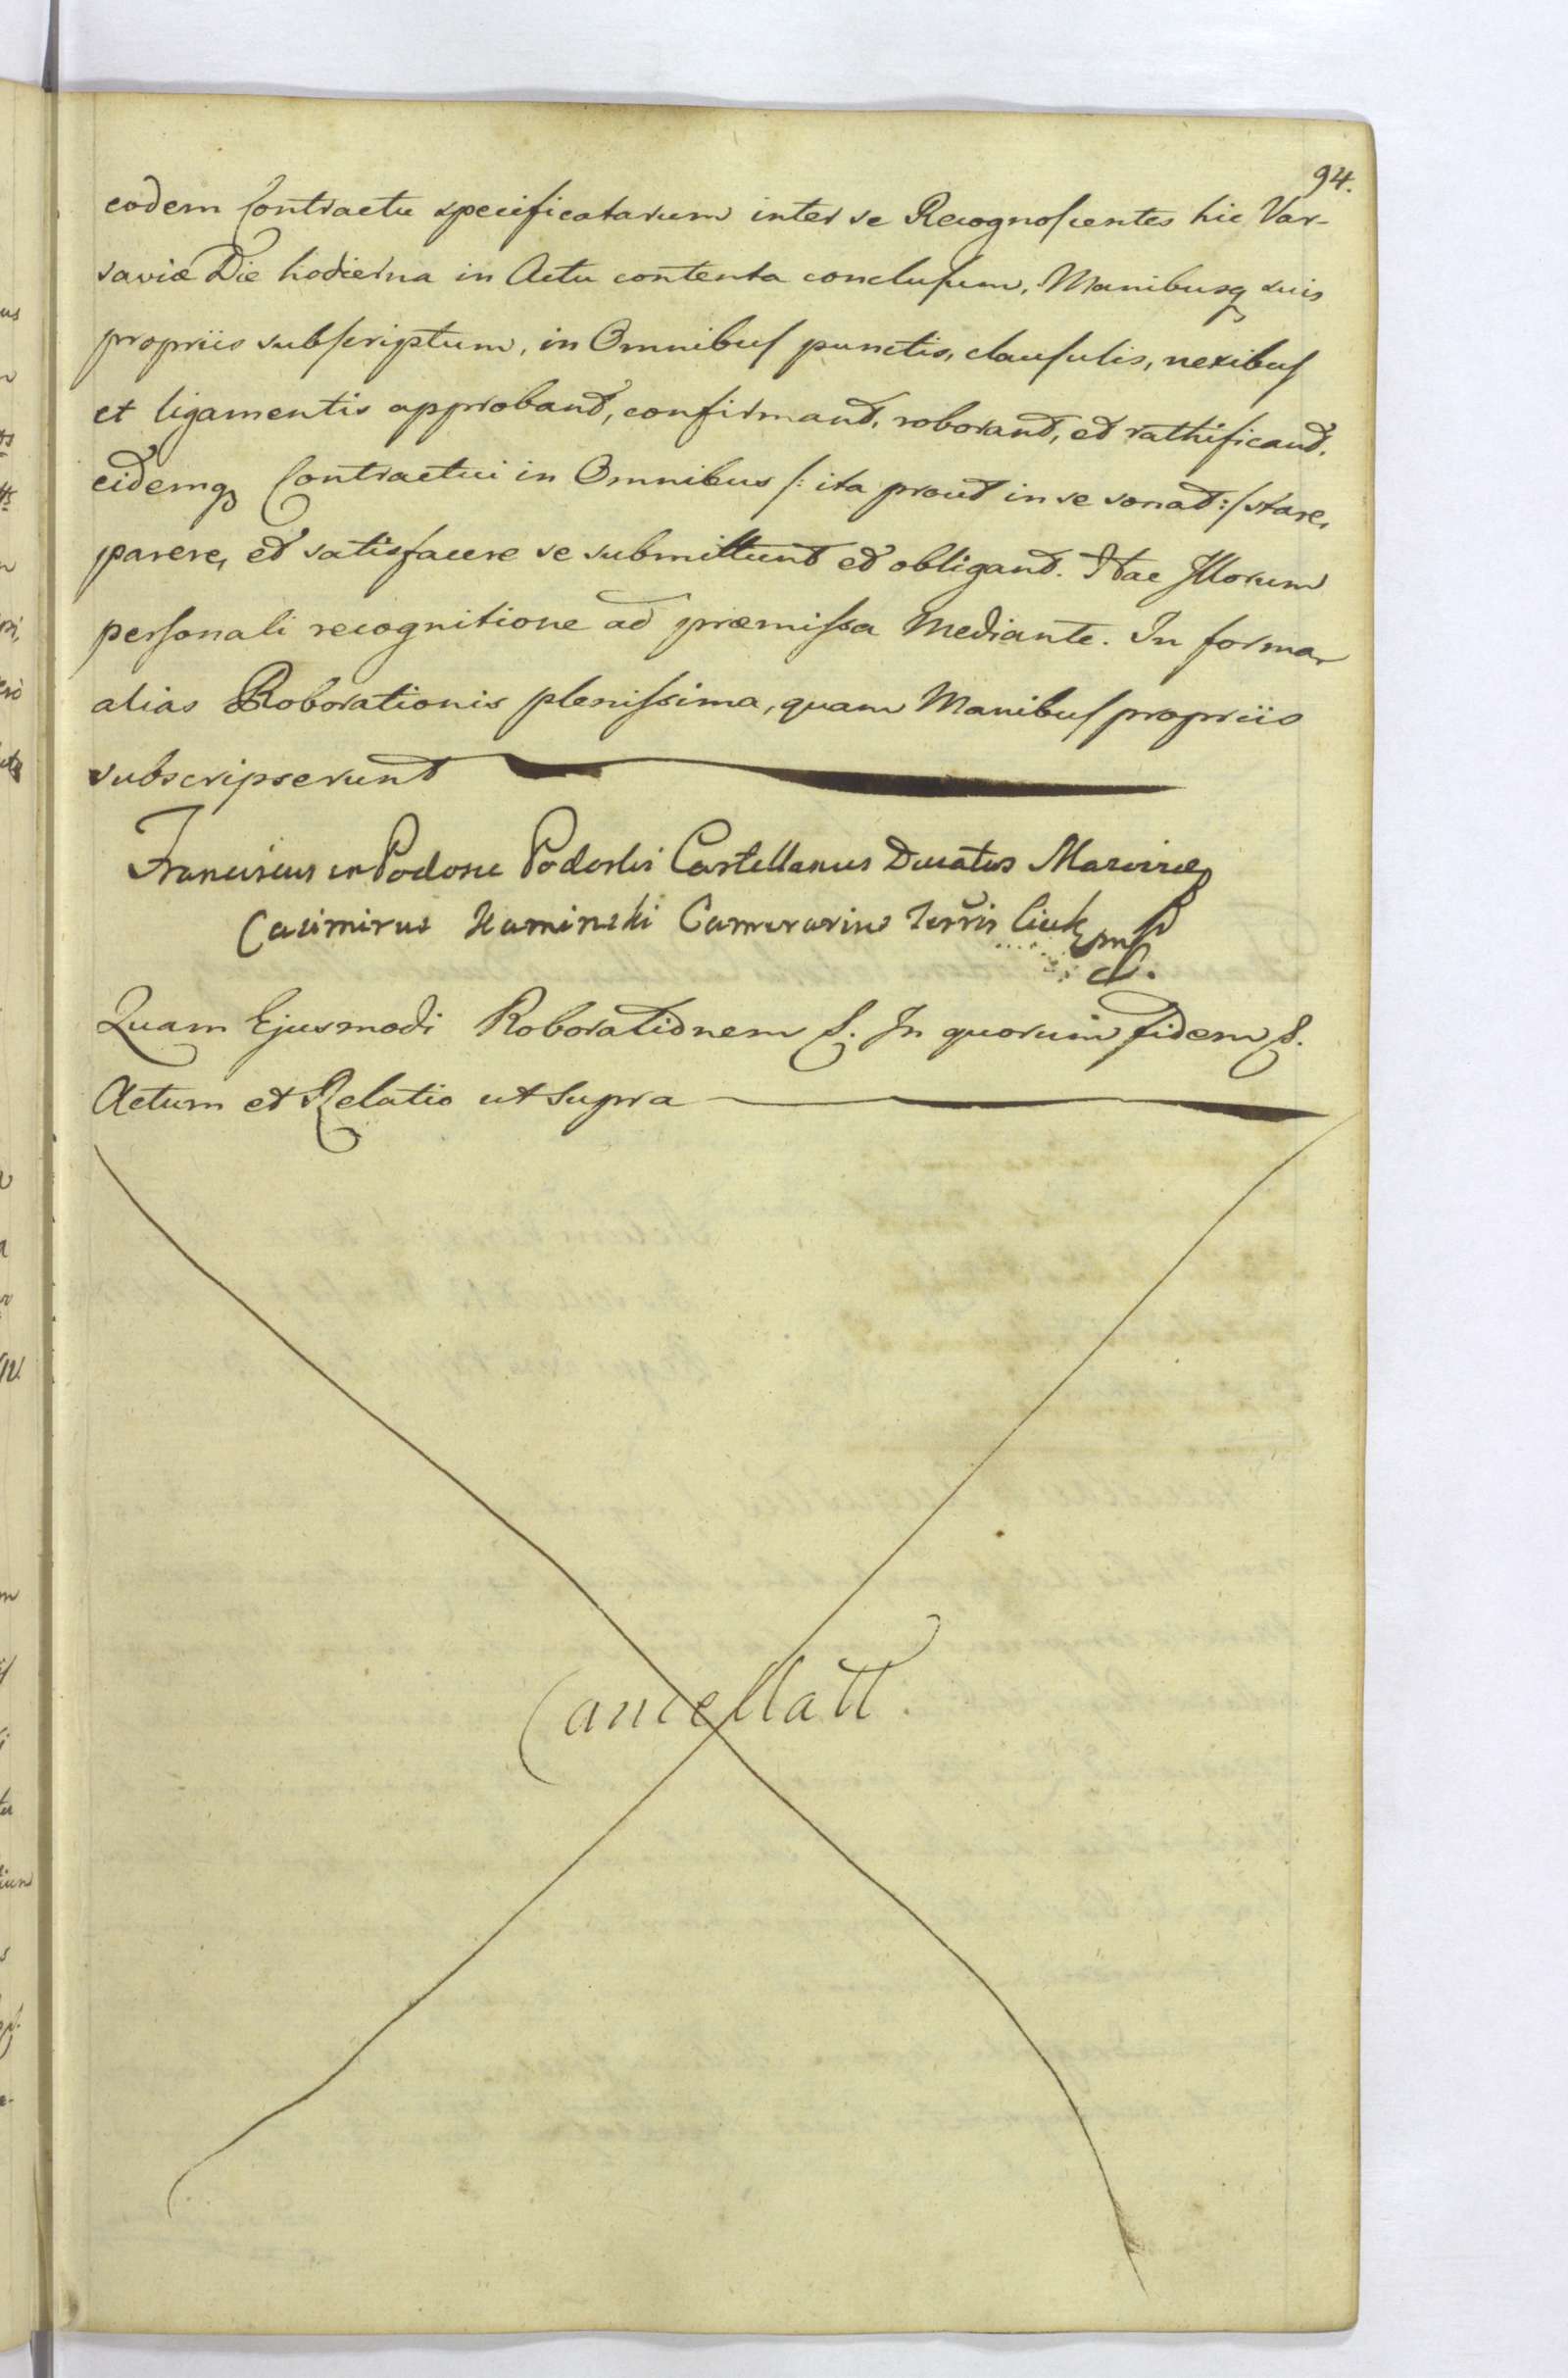 94.
eodem Contractu specificatarum inter se Recognoscentes hic Var-
saviæ Die hodierna in Actu contenta conclusum, Manibusq suis
propriis subscriptum, in Omnibus punctis, clausulis, nexibus
et ligamentis approbant, confirmant, roborant, et rathificant.
eidemq Contractui in Omnibus /: ita prout in se sonat :/ stare,
parere, et satisfacere se submittunt et obligant. Hac Illorum
personali recognitione ad præmissa Mediante. In forma
alias Roborationis plenissima, quam Manibus propriis
subscripserunt
Franciscus in Podosie Podoski Castellanus Ducatus Mazoviæ
Casimirus Kaminski Camerarius Terris Ciech mp
Quam Ejusmodi Roborationem S. In quorum fidem S.
Actum et Relatio ut Supra
Cancellatt.